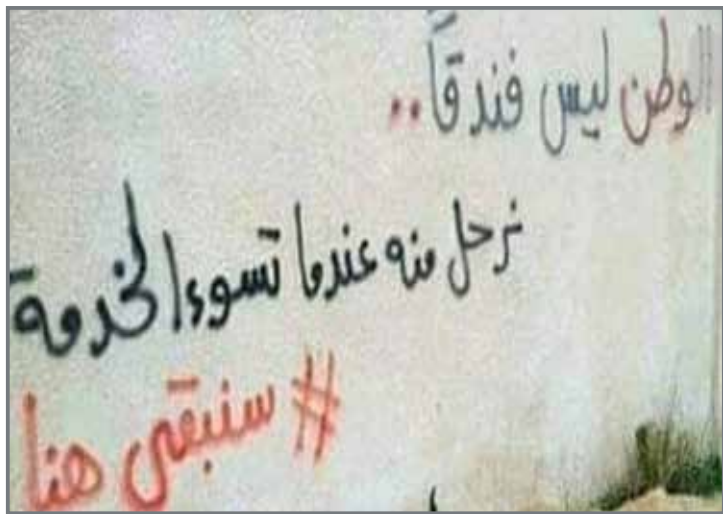 الوطن ليس فندقاً..
نرحل منه عندما تسوء الخدمة
#سنبقى هنا